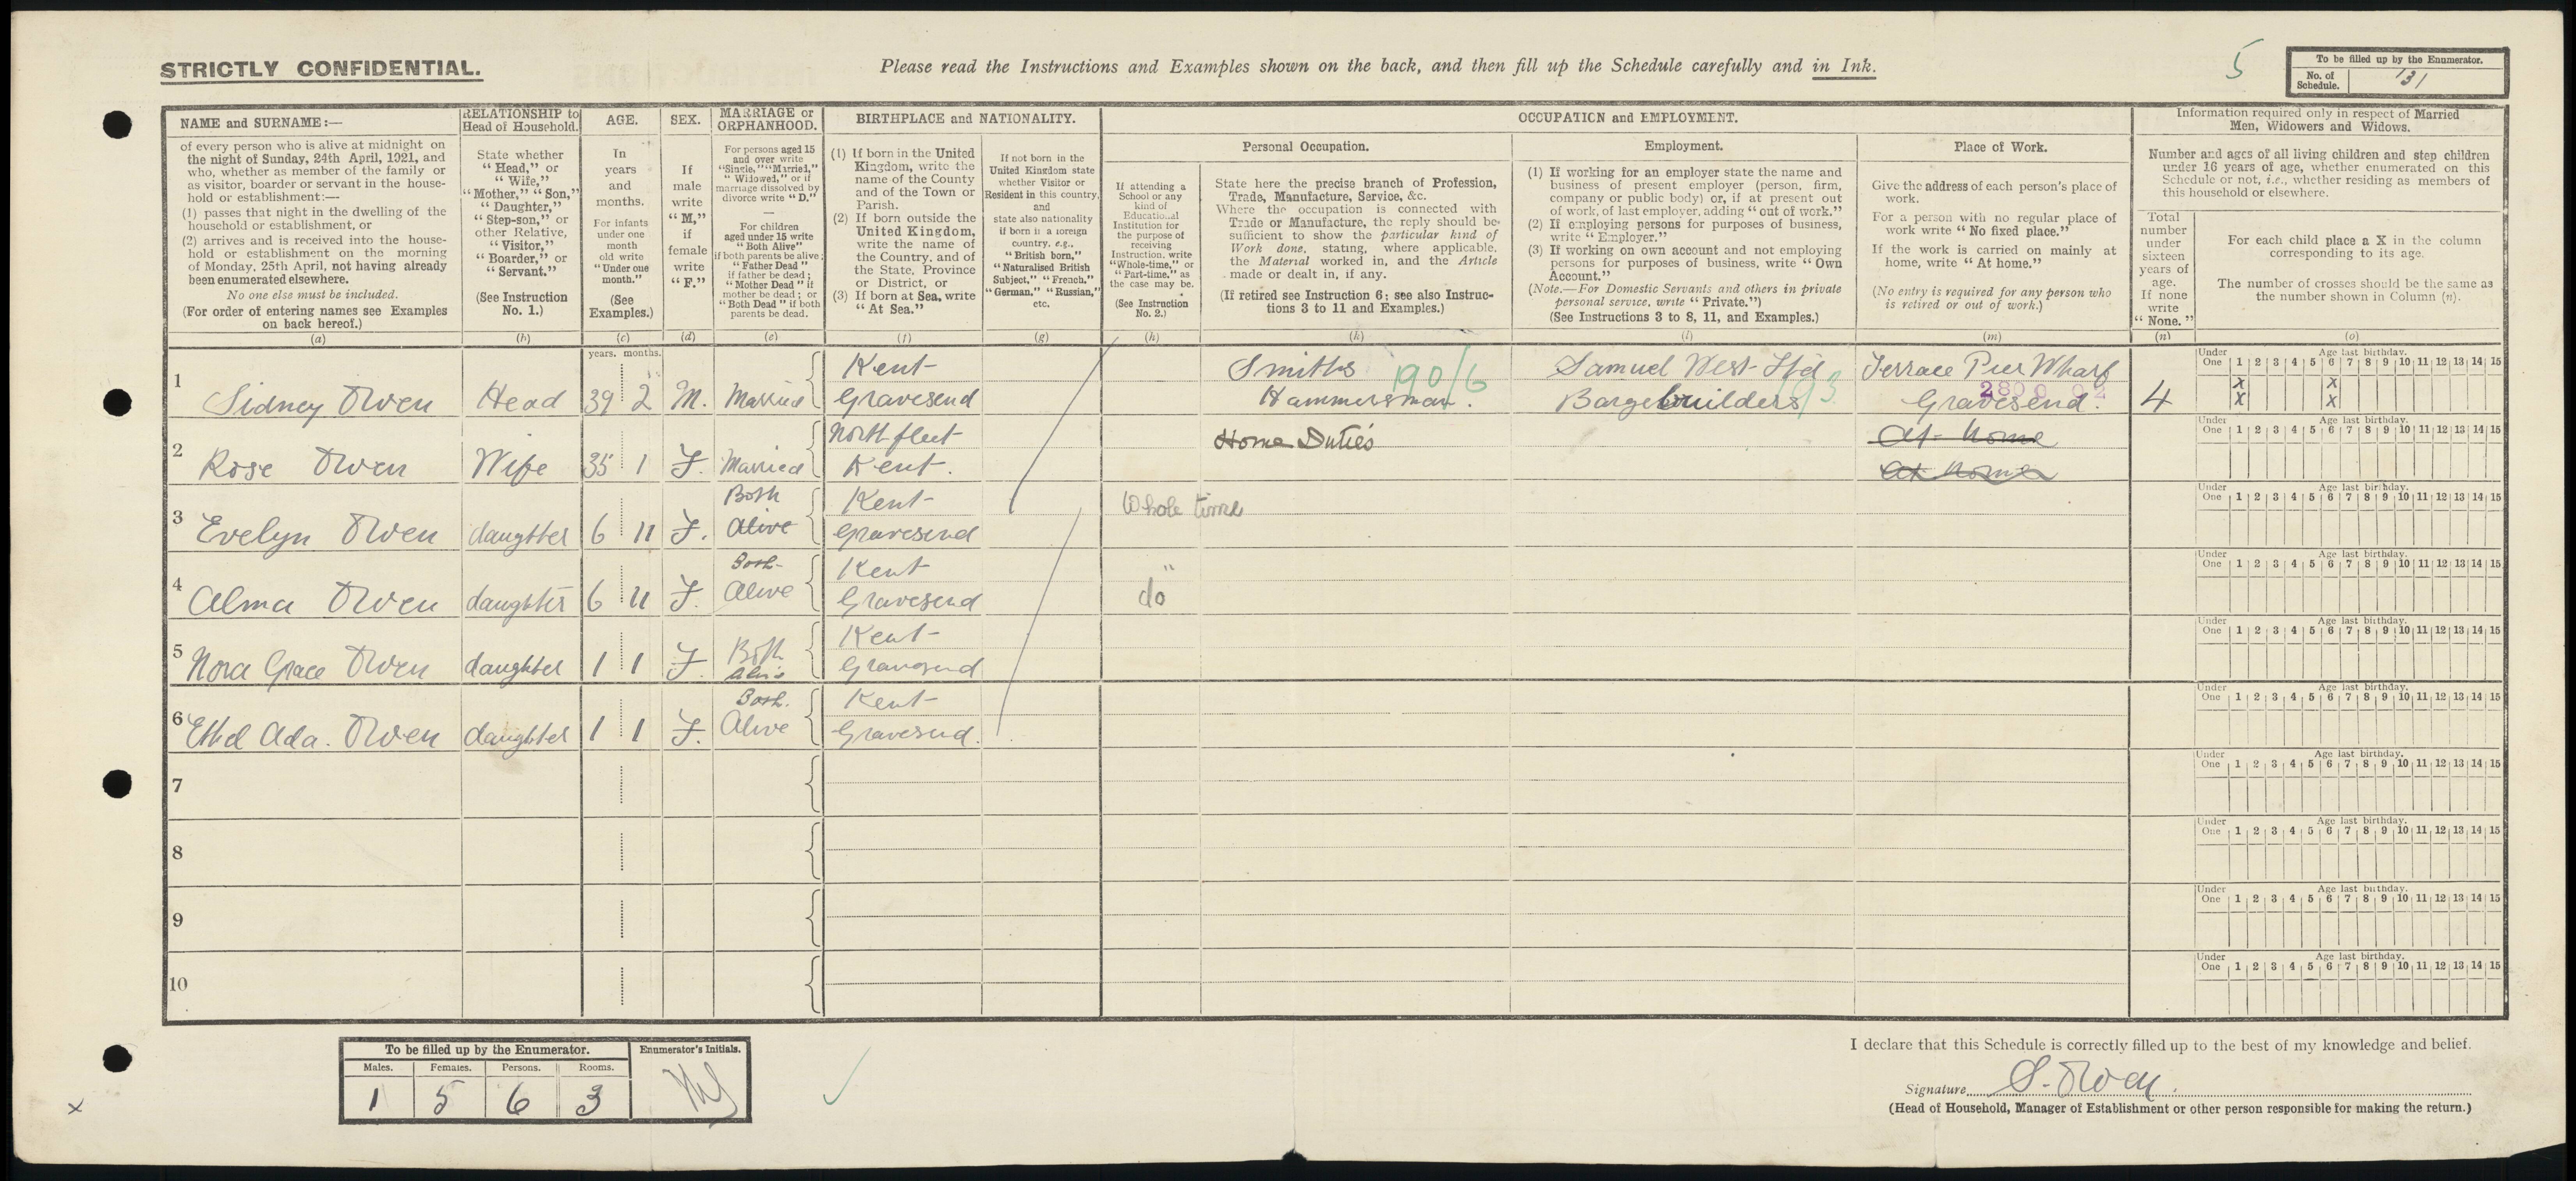 STRICTLY CONFIDENTIAL.
Please read the Instructions and Examples shown on the back, and then fill up the Schedule carefully and in Ink.
5
To be filled up by the Enumerator.
No. of Schedule. 131
NAME and SURNAME:—
of every person who is alive at midnight on
the night of Sunday, 24th April, 1921, and
who, whether as member of the family or
as visitor, boarder or servant in the house-
hold or establishment:—
(1) passes that night in the dwelling of the
household or establishment, or
(2) arrives and is received into the house-
hold or establishment on the morning
of Monday, 25th April, not having already
been enumerated elsewhere.
No one else must be included.
(For order of entering names see Examples
on back hereof.)
(a)
RELATIONSHIP to
Head of Household.
State whether
"Head," or
"Wife,"
"Mother," "Son,"
"Daughter,"
"Step-son," or
other Relative,
"Visitor,"
"Boarder," or
"Servant."
(See Instruction
No. 1.)
(b)
AGE.
In
years
and
months.
For infants
under one
month
old write
"Under one
month."
(See
Examples.)
(c)
years. months.
SEX.
If
male
write
"M,"
if
female
write
"F."
(d)
MARRIAGE or
ORPHANHOOD.
For persons aged 15
and over write
"Single," "Married,"
"Widowed," or if
marriage dissolved by
divorce write "D."
—
For children
aged under 15 write
"Both Alive"
if both parents be alive;
"Father Dead"
if father be dead;
"Mother Dead" if
mother be dead; or
"Both Dead" if both
parents be dead.
(e)
BIRTHPLACE and NATIONALITY.
(1) If born in the United
Kingdom, write the
name of the County
and of the Town or
Parish.
(2) If born outside the
United Kingdom,
write the name of
the Country, and of
the State, Province
or District, or
(3) If born at Sea, write
"At Sea."
(f)
If not born in the
United Kingdom state
whether Visitor or
Resident in this country,
and
state also nationality
if born in a foreign
country, e.g.,
"British born,"
"Naturalised British
Subject," "French,"
"German," "Russian,"
etc.
(g)
OCCUPATION and EMPLOYMENT.
If attending a
School or any
kind of
Educational
Institution for
the purpose of
receiving
Instruction, write
"Whole-time," or
"Part-time," as
the case may be.
(See Instruction
No. 2.)
(h)
Personal Occupation.
State here the precise branch of Profession,
Trade, Manufacture, Service, &c.
Where the occupation is connected with
Trade or Manufacture, the reply should be
sufficient to show the particular kind of
Work done, stating, where applicable,
the Material worked in, and the Article
made or dealt in, if any.
(If retired see Instruction 6; see also Instruc-
tions 3 to 11 and Examples.)
(k)
Employment.
(1) If working for an employer state the name and
business of present employer (person, firm,
company or public body) or, if at present out
of work, of last employer, adding "out of work."
(2) If employing persons for purposes of business,
write "Employer."
(3) If working on own account and not employing
persons for purposes of business, write "Own
Account."
(Note.—For Domestic Servants and others in private
personal service, write "Private.")
(See Instructions 3 to 8, 11, and Examples.)
(l)
Place of Work.
Give the address of each person's place of
work.
For a person with no regular place of
work write "No fixed place."
If the work is carried on mainly at
home, write "At home."
(No entry is required for any person who
is retired or out of work.)
(m)
Information required only in respect of Married
Men, Widowers and Widows.
Number and ages of all living children and step children
under 16 years of age, whether enumerated on this
Schedule or not, i.e., whether residing as members of
this household or elsewhere.
Total
number
under
sixteen
years of
age.
If none
write
"None."
(n)
For each child place a X in the column
corresponding to its age.
The number of crosses should be the same as
the number shown in Column (n).
(o)
Under One Age last birthday. 1 2 3 4 5 6 7 8 9 10 11 12 13 14 15
1 Sidney Owen Head 39 2 M. Married Kent Gravesend Smiths Hammersman. 190/6 Samuel West Ltd Bargebuilders Terrace Pier Wharf Gravesend. 4 X X X X
Under One Age last birthday. 1 2 3 4 5 6 7 8 9 10 11 12 13 14 15
2 Rose Owen Wife 35 1 F. Married Northfleet Kent. Home Duties At home At home
Under One Age last birthday. 1 2 3 4 5 6 7 8 9 10 11 12 13 14 15
3 Evelyn Owen daughter 6 11 F. Both Alive Kent Gravesend Whole time
Under One Age last birthday. 1 2 3 4 5 6 7 8 9 10 11 12 13 14 15
4 Alma Owen daughter 6 11 F. Both Alive Kent Gravesend do
Under One Age last birthday. 1 2 3 4 5 6 7 8 9 10 11 12 13 14 15
5 Nora Grace Owen daughter 1 1 F. Both Alive Kent Gravesend
Under One Age last birthday. 1 2 3 4 5 6 7 8 9 10 11 12 13 14 15
6 Ethel Ada. Owen daughter 1 1 F. Both. Alive Kent Gravesend.
Under One Age last birthday. 1 2 3 4 5 6 7 8 9 10 11 12 13 14 15
7
Under One Age last birthday. 1 2 3 4 5 6 7 8 9 10 11 12 13 14 15
8
Under One Age last birthday. 1 2 3 4 5 6 7 8 9 10 11 12 13 14 15
9
Under One Age last birthday. 1 2 3 4 5 6 7 8 9 10 11 12 13 14 15
10
To be filled up by the Enumerator.
Males. Females. Persons. Rooms.
1 5 6 3
Enumerator's Initials.
I declare that this Schedule is correctly filled up to the best of my knowledge and belief.
Signature S. Owen.
(Head of Household, Manager of Establishment or other person responsible for making the return.)